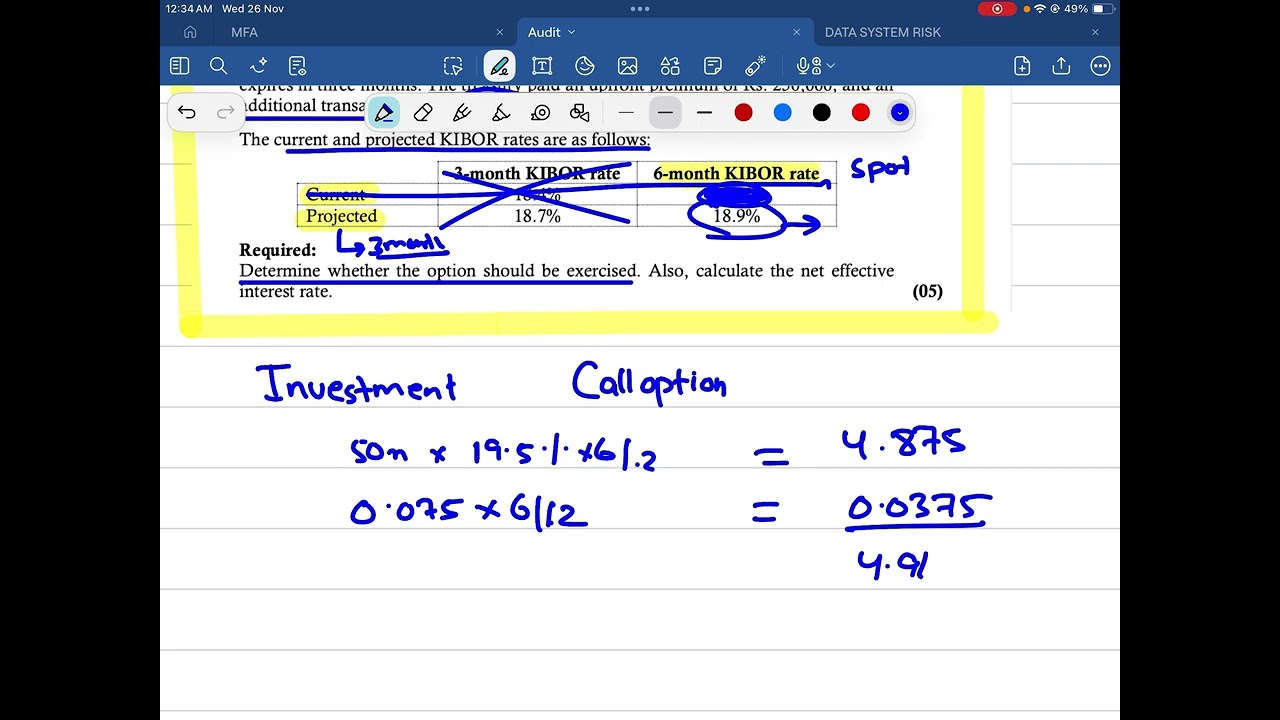 12:34 AM Wed 26 Nov 49%
MFA Audit DATA SYSTEM RISK
expires in three months. The treasury paid an upfront premium of Rs. 250,000, and an
additional transa
The current and projected KIBOR rates are as follows:
3-month KIBOR rate 6-month KIBOR rate spot
Current
Projected 18.7% 18.9%
3month
Required:
Determine whether the option should be exercised. Also, calculate the net effective
interest rate.
(05)
Investment Call option
50m × 19.5% × 6/12 = 4.875
0.075 × 6/12 = 0.0375
4.91